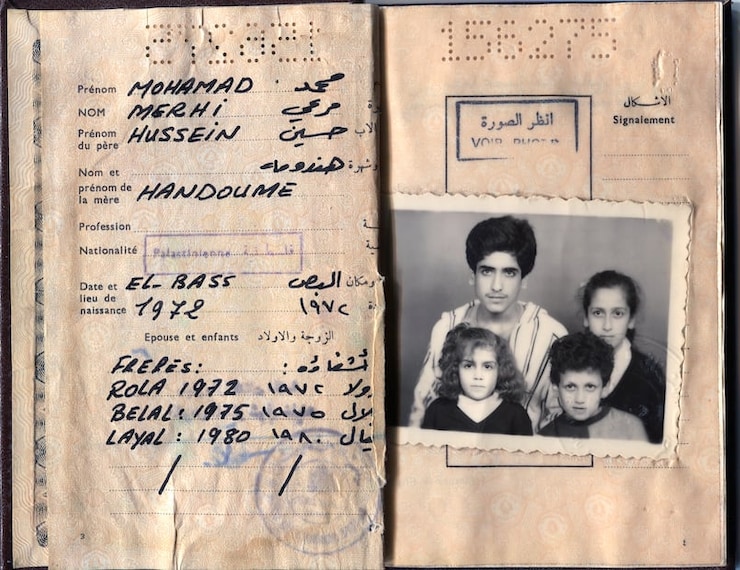 Prénom MOHAMAD محمد
NOM MERHI مرعي
Prénom du père HUSSEIN حسين الاب
Nom et هندومه وشهرة
prénom de la mère HANDOUME
Profession
Nationalité Palestinienne
Date et lieu de naissance EL-BASS البص ومكان
1972 ١٩٧٢
Epouse et enfants الزوجة والاولاد
FRERES:
ROLA 1972 ١٩٧٢ رولا
BELAL: 1975 ١٩٧٥ بلال
LAYAL: 1980 ١٩٨٠ ليال
156275
الاشكال
Signalement
انظر الصورة
VOIR PHOTO